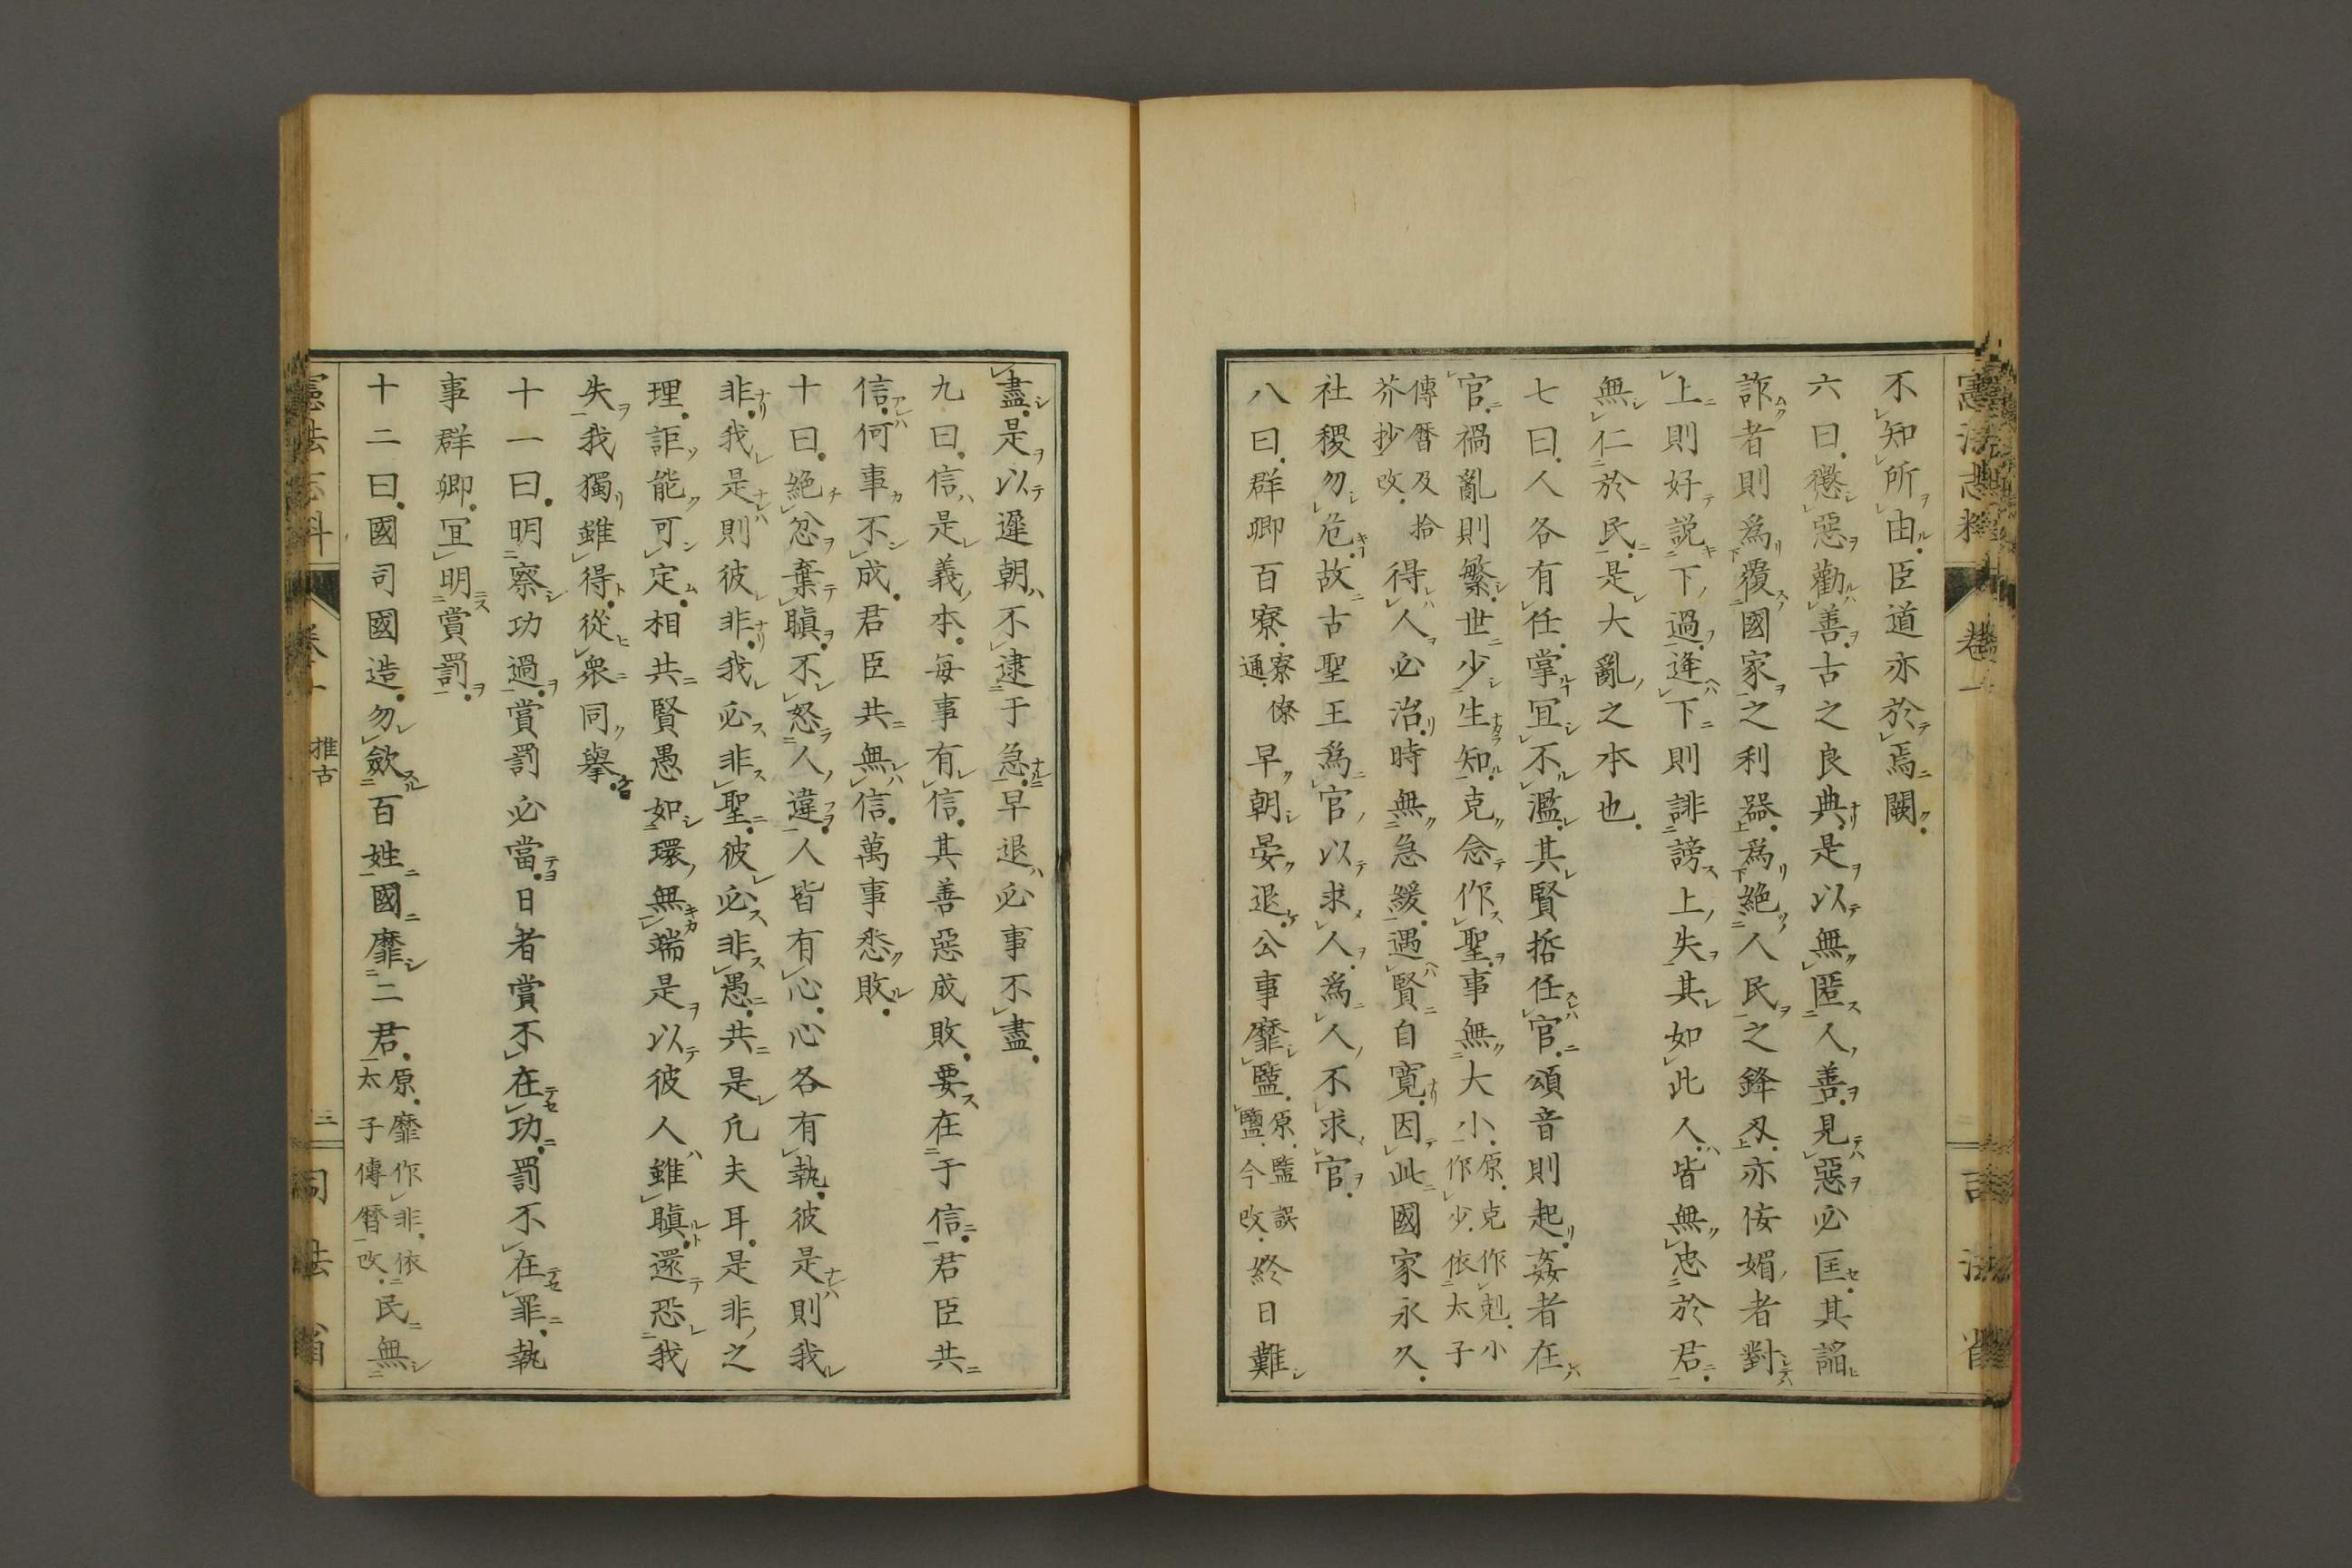 憲法志料 卷一 司法省
不知所由.臣道亦於焉闕.
六曰.懲惡勸善.古之良典.是以無匿人善.見惡必匡.其諂
詐者則爲覆國家之利器.爲絕人民之鋒刃.亦侫媚者對
上則好説下過.逢下則誹謗上失.其如此人.皆無忠於君.
無仁於民.是大亂之本也.
七曰.人各有任.掌冝不濫.其賢哲任官.頌音則起.姧者在
官.禍亂則繁.世少生知.克念作聖.事無大小.原.克作剋.小作少.依太子
傳曆及拾芥抄改.得人必治.時無急緩.遇賢自寬.因此國家永久.
社稷勿危.故古聖王爲官以求人.爲人不求官.
八曰.群卿百寮.寮僚通.早朝晏退.公事靡盬.原.監誤盬.今改.終日難
盡.是以遲朝不逮于急.早退必事不盡.
九曰.信是義本.每事有信.其善惡成敗.要在于信.君臣共
信.何事不成.君臣共無信.萬事悉敗.
十曰.絕忿棄瞋.不怒人違.人皆有心.心各有執.彼是則我
非.我是則彼非.我必非聖.彼必非愚.共是凡夫耳.是非之
理.詎能可定.相共賢愚如環無端.是以彼人雖瞋.還恐我
失.我獨雖得.從衆同擧.
十一曰.明察功過.賞罰必當.日者賞不在功.罰不在罪.執
事群卿.冝明賞罰.
十二曰.國司國造.勿歛百姓.國靡二君.原.靡作非.依太子傳曆改.民無
憲法志料 卷一 推古 三 司法省